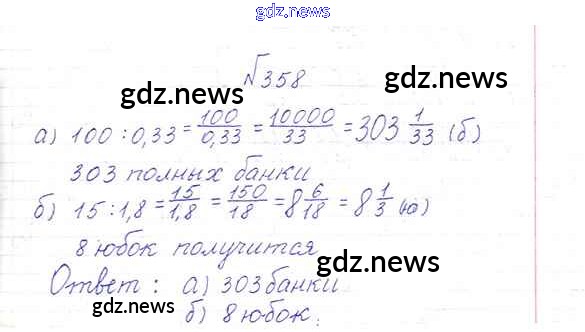 gdz.news
№358
gdz.news
gdz.news
а) 100 : 0,33 = 100/0,33 = 10000/33 = 303 1/33 (б)
303 полных банки
б) 15 : 1,8 = 15/1,8 = 150/18 = 8 6/18 = 8 1/3 (ю)
8 юбок получится
gdz.news
Ответ : а) 303 банки
gdz.news
б) 8 юбок.